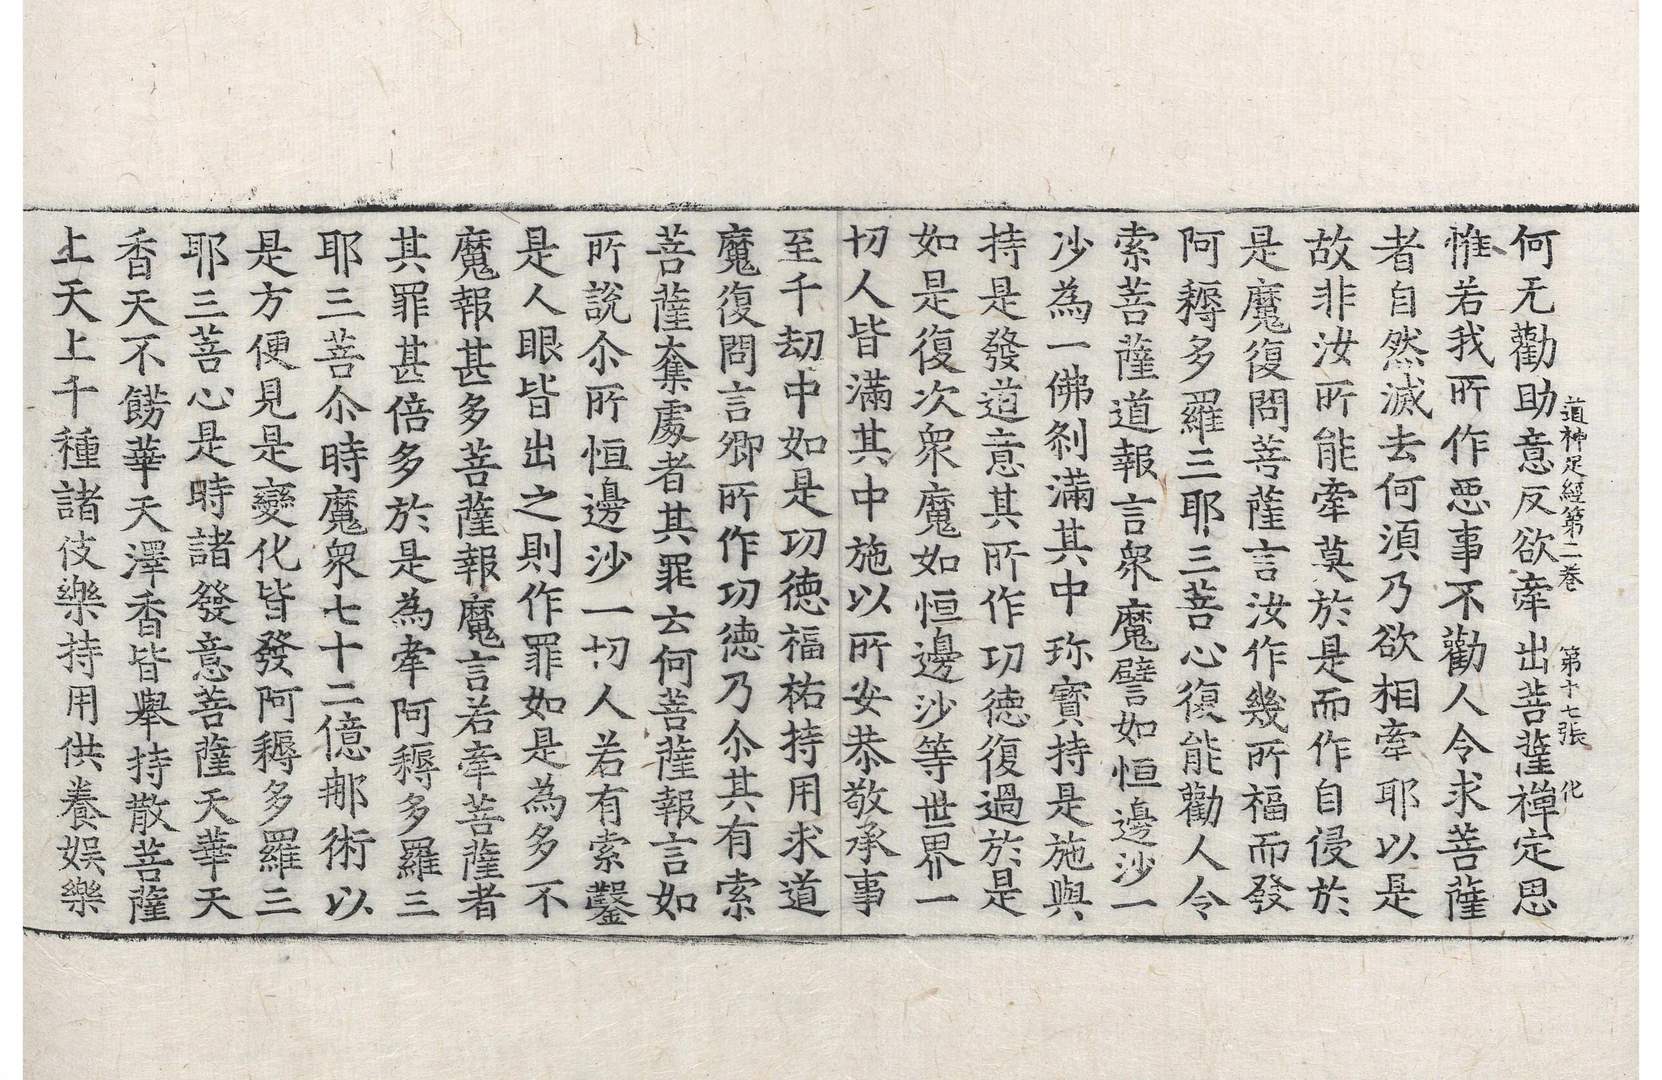 道神足經第二卷 第十七張 化
何无勸助意反欲牽出菩薩禪定思
惟若我所作惡事不勸人令求菩薩
者自然滅去何須乃欲相牽耶以是
故非汝所能牽莫於是而作自侵於
是魔復問菩薩言汝作幾所福而發
阿耨多羅三耶三菩心復能勸人令
索菩薩道報言衆魔譬如恒邊沙一
沙為一佛刹滿其中珎寶持是施與
持是發道意其所作功德復過於是
如是復次衆魔如恒邊沙等世界一
切人皆滿其中施以所安恭敬承事
至千劫中如是功德福祐持用求道
魔復問言卿所作功德乃尒其有索
菩薩奪處者其罪云何菩薩報言如
所說尒所恒邊沙一切人若有索鑿
是人眼皆出之則作罪如是為多不
魔報甚多菩薩報魔言若牽菩薩者
其罪甚倍多於是為牽阿耨多羅三
耶三菩尒時魔衆七十二億那術以
是方便見是變化皆發阿耨多羅三
耶三菩心是時諸發意菩薩天華天
香天不餝華天澤香皆舉持散菩薩
上天上千種諸伎樂持用供養娛樂